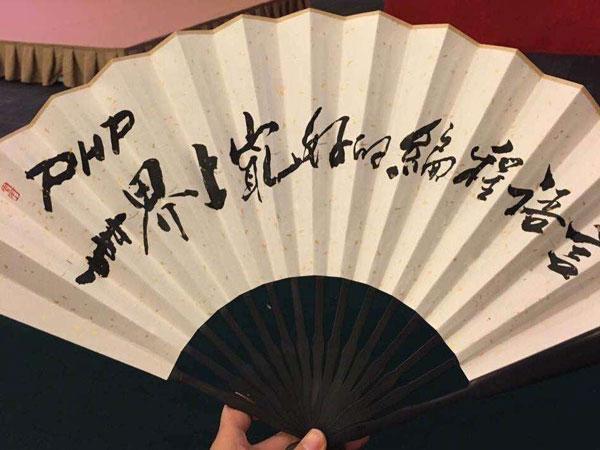 PHP
世界上最好的编程语言